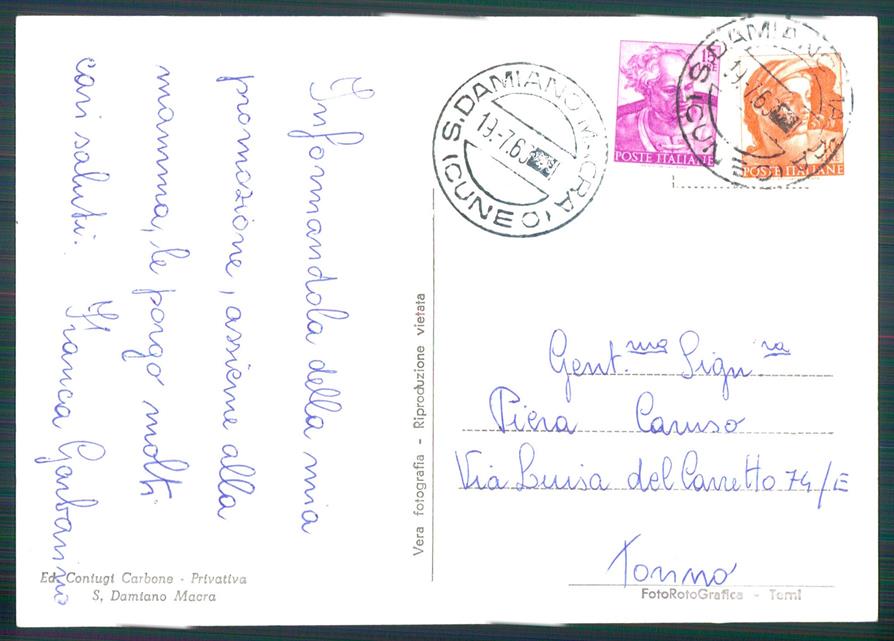 Informandola della mia
promozione, assieme alla
mamma, le porgo molti
cari saluti.
Franca Garbarino
Ed. Coniugi Carbone - Privativa
S. Damiano Macra
Vera fotografia - Riproduzione vietata
S. DAMIANO M
CRA
19-7.6
(CUNEO)
POSTE ITALIANE
S. DAMIANO
CRA
19.7.6
(CUNEO)
POSTE ITALIANE
Gent.ma Sign.ra
Piera Caruso
Via Luisa del Carretto 74/E
Torino
FotoRotoGrafica - Terni